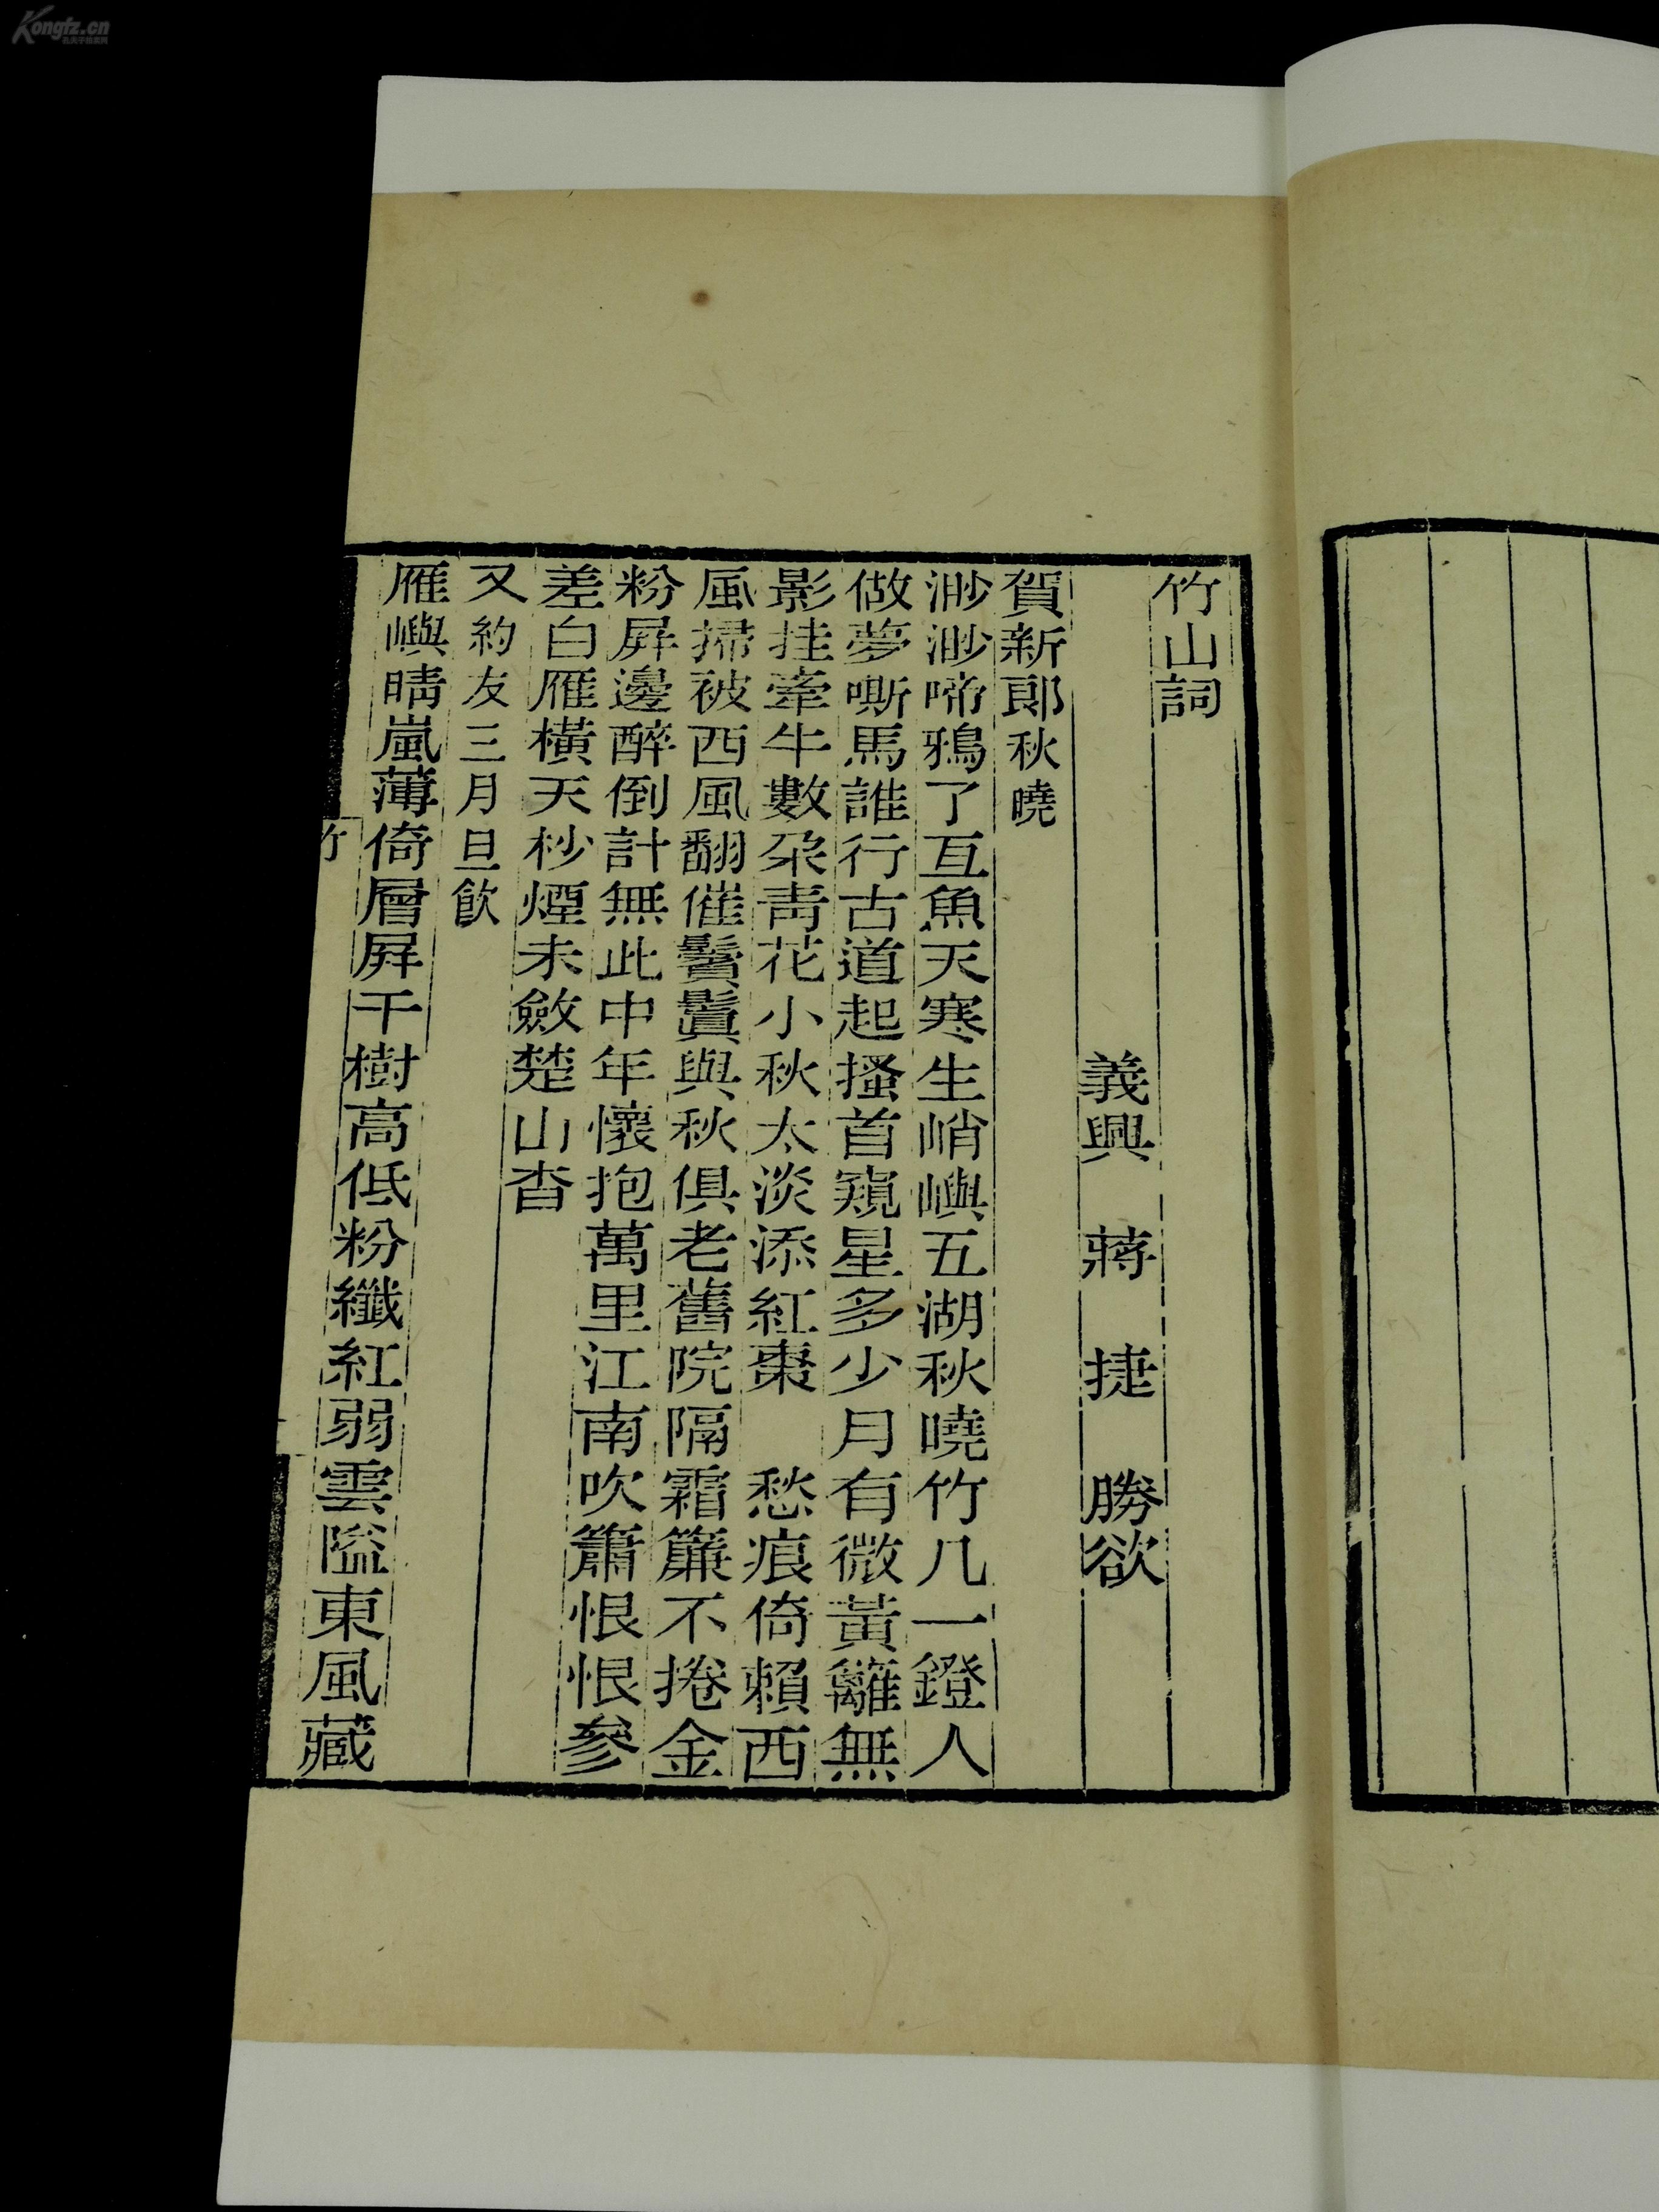 竹山詞
義興　蔣　捷　勝欲
賀新郎秋曉
渺渺啼鴉了亙魚天寒生峭嶼五湖秋曉竹几一鐙人
做夢嘶馬誰行古道起搔首窺星多少月有微黃籬無
影挂牽牛數朶靑花小秋太淡添紅棗　愁痕倚賴西
風掃被西風翻催鬢鬒與秋俱老舊院隔霜簾不捲金
粉屛邊醉倒計無此中年懷抱萬里江南吹簫恨恨參
差白雁橫天杪煙未斂楚山杳
又約友三月旦飲
雁嶼晴嵐薄倚層屛千樹高低粉纖紅弱雲隘東風藏
竹
Kongfz.cn